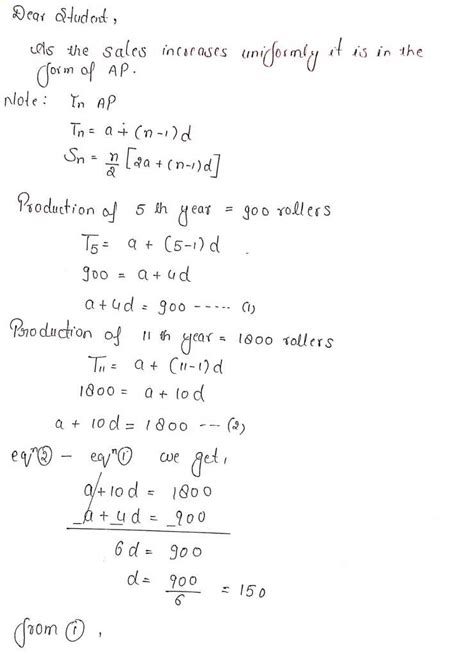 Dear Student,
As the sales increases uniformly it is in the
form of AP.
Note: In AP
Tn = a + (n-1)d
Sn = n/2 [2a + (n-1)d]
Production of 5 th year = 900 rollers
T5 = a + (5-1)d
900 = a + 4d
a + 4d = 900 ----- (1)
Production of 11 th year = 1800 rollers
T11 = a + (11-1)d
1800 = a + 10d
a + 10d = 1800 --- (2)
eqn② - eqn① we get,
a + 10d = 1800
_a + _4d = _900
6d = 900
d = 900/6 = 150
from ①,